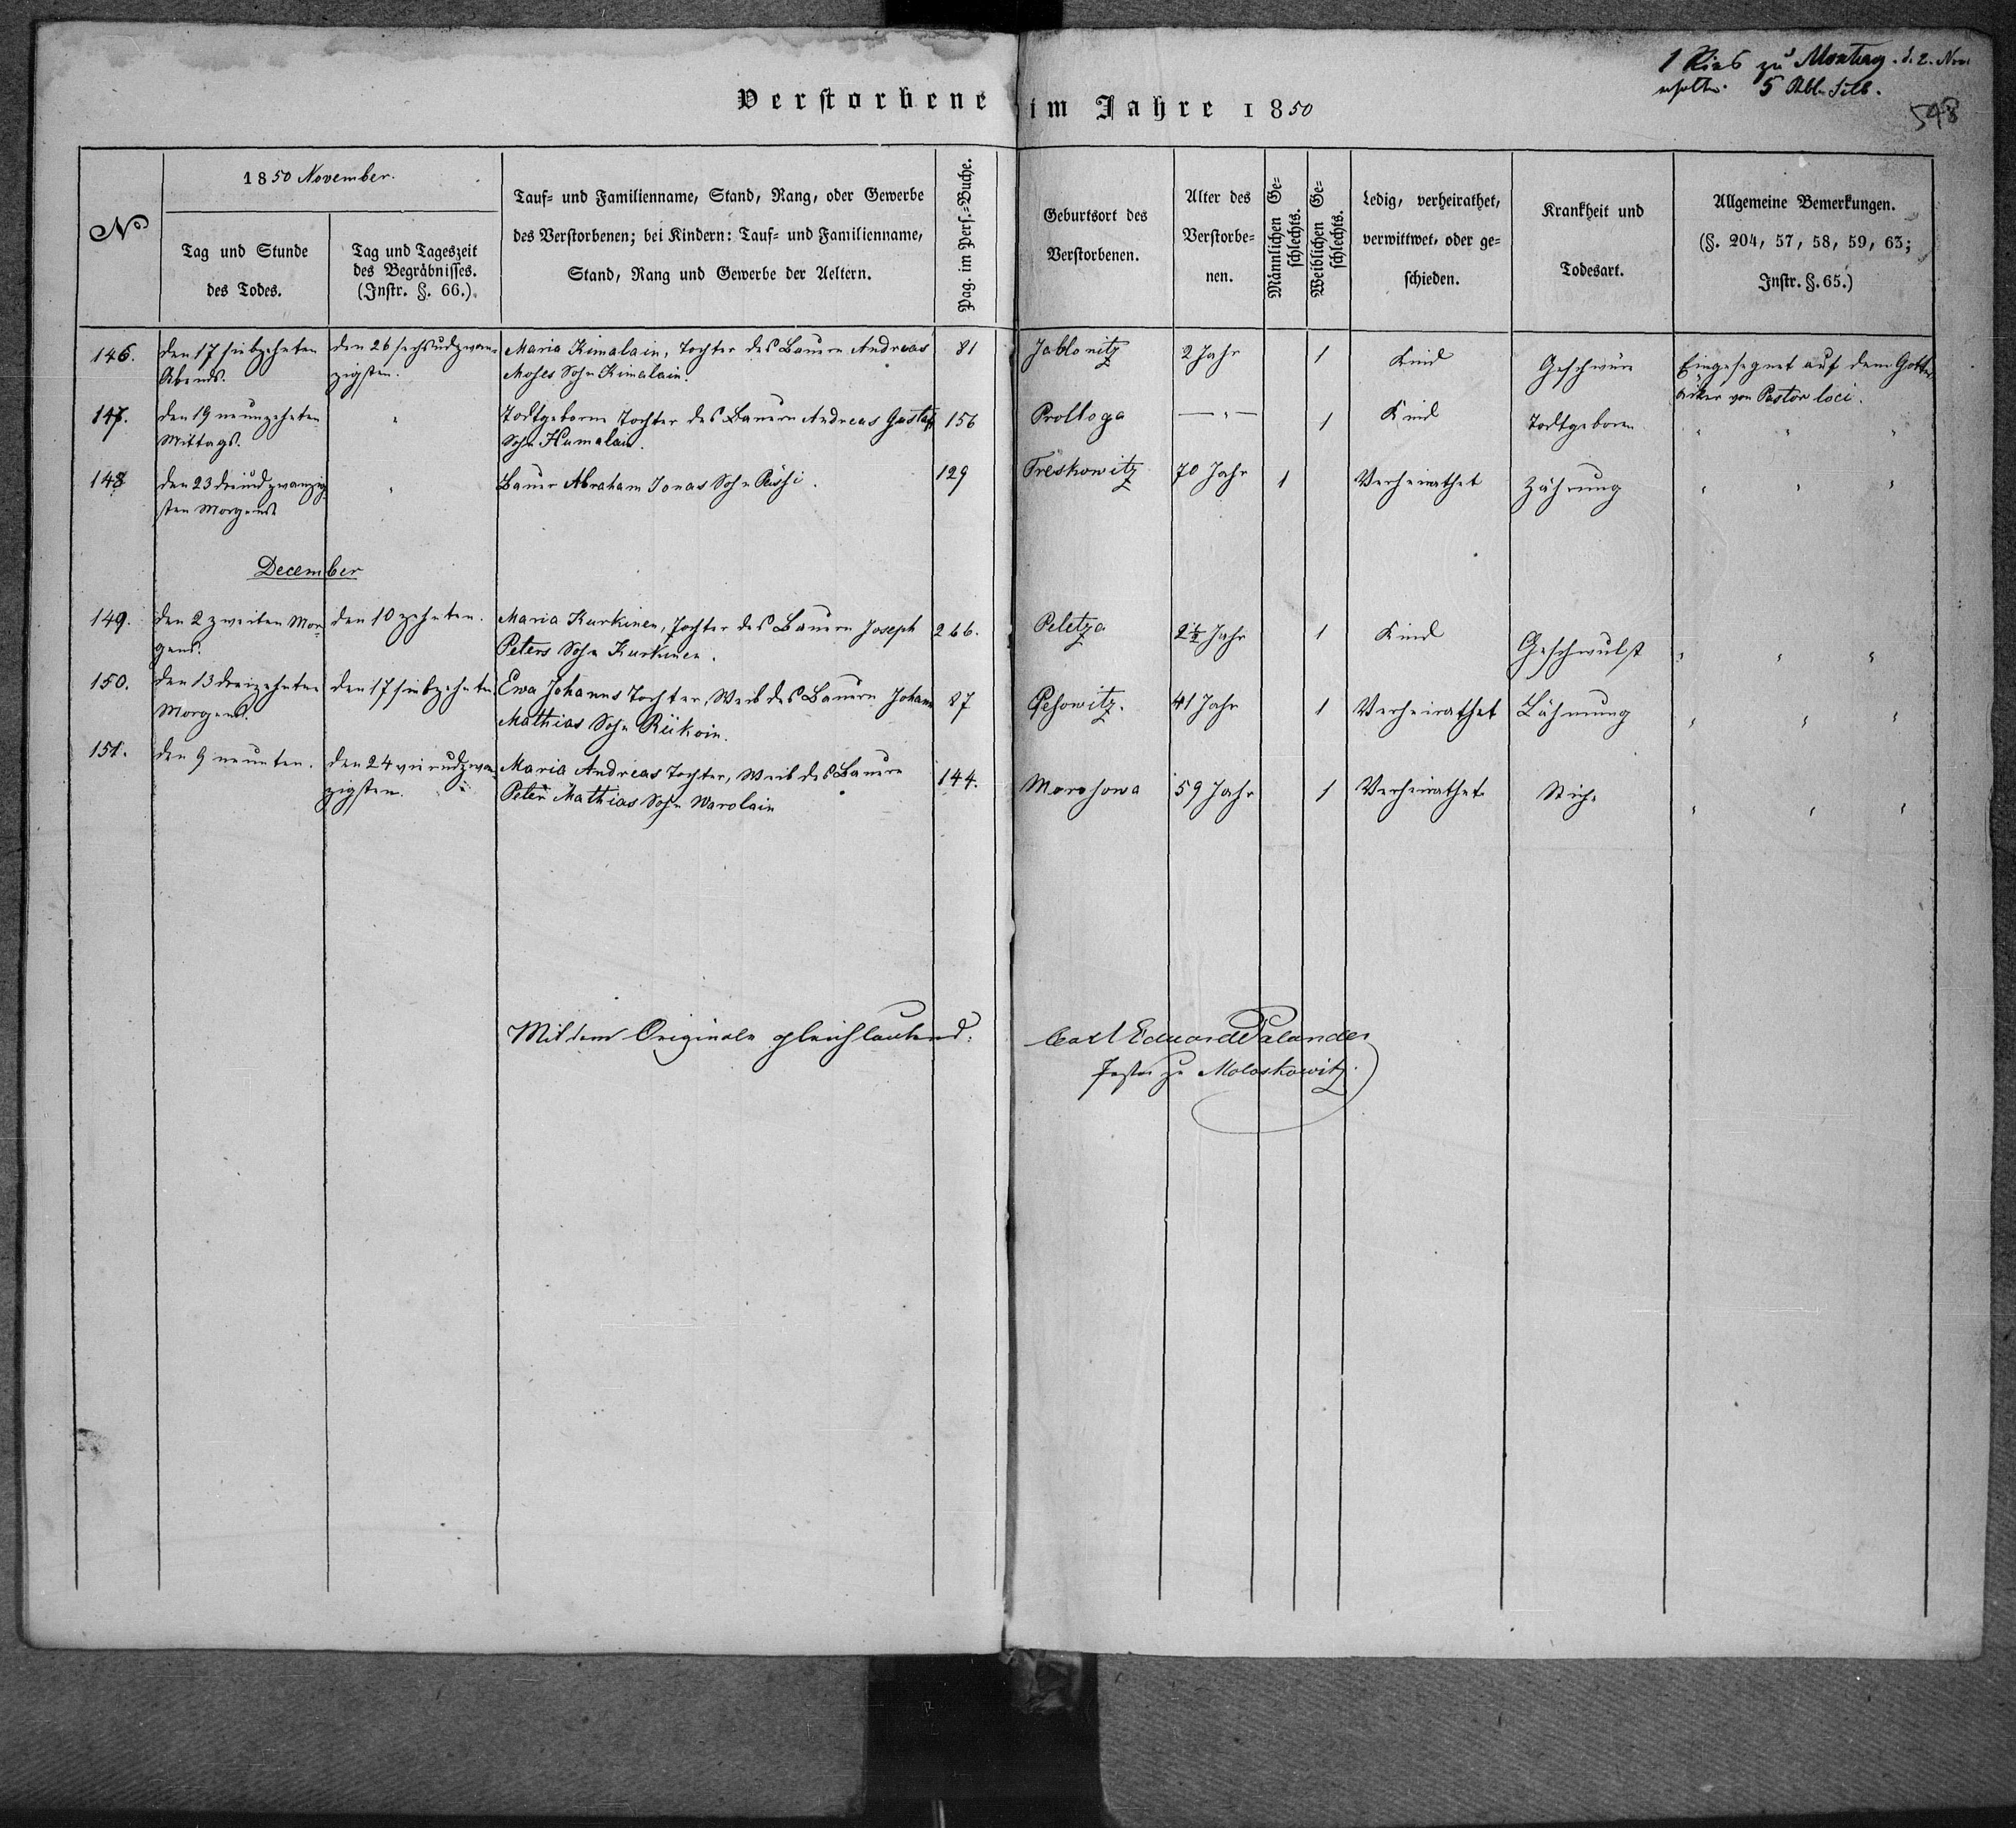 1 Ries zu Montag. d. 2. Nov.
5 Rbl. Silb.
548
Verstorbene im Jahre 1850
No
1850 November.
Tag und Stunde
des Todes.
Tag und Tageszeit
des Begräbnisses.
(Instr. §. 66.)
Tauf- und Familienname, Stand, Rang, oder Gewerbe
des Verstorbenen; bei Kindern: Tauf- und Familienname,
Stand, Rang und Gewerbe der Aeltern.
Pag. im Pers.-Buche.
Geburtsort des
Verstorbenen.
Alter des
Verstorbe-
nen.
Männlichen Ge-
schlechts.
Weiblichen Ge-
schlechts.
Ledig, verheirathet,
verwittwet, oder ge-
schieden.
Krankheit und
Todesart.
Allgemeine Bemerkungen.
(§. 204, 57, 58, 59, 63;
Instr. §. 65.)
146. den 17 siebzehnten den 26 sechsudzwan- Maria Kimalain, Tochter des Bauern Andreas 81 Jablonitz 2 Jahr 1 Kind Geschwüre Eingesegnet auf dem Gottes
Abends. zigsten. Moses Sohn Kimalain. acker von Pastor loci.
147. den 19 neunzehnten " Todtgeborne Tochter des Bauern Andreas Gustaf 156 Prolloga — " — 1 Kind Todtgeboren " " "
Mittags. Sohn Humalain.
148 den 23 dreiudzwanzig- " Bauer Abraham Jonas Sohn Pässi. 129 Treskowitz 70 Jahr 1 Verheirathet Zehrung " " "
sten Morgens
December
149. den 2 zweiten Mor- den 10 zehnten. Maria Kurkinen, Tochter des Bauern Joseph 266. Peletza 2½ Jahr 1 Kind Geschwulst " " "
gens. Peters Sohn Kurkinen.
150. den 13 dreizehnten den 17 siebzehnten Ewa Johanns Tochter, Weib des Bauern Johann 87 Pesowitz. 41 Jahr 1 Verheirathet Lähmung " " "
Morgens. Mathias Sohn Riikoin.
151. den 9 neunten. den 24 vierudzwan- Maria Andreas Tochter, Weib des Bauern 144. Morosowa 59 Jahr 1 Verheirathet Stich " " "
zigsten. Peter Mathias Sohn Warolain
Mit dem Originale gleichlautend: Carl Eduard Palander
Pastor zu Moloskowitz.